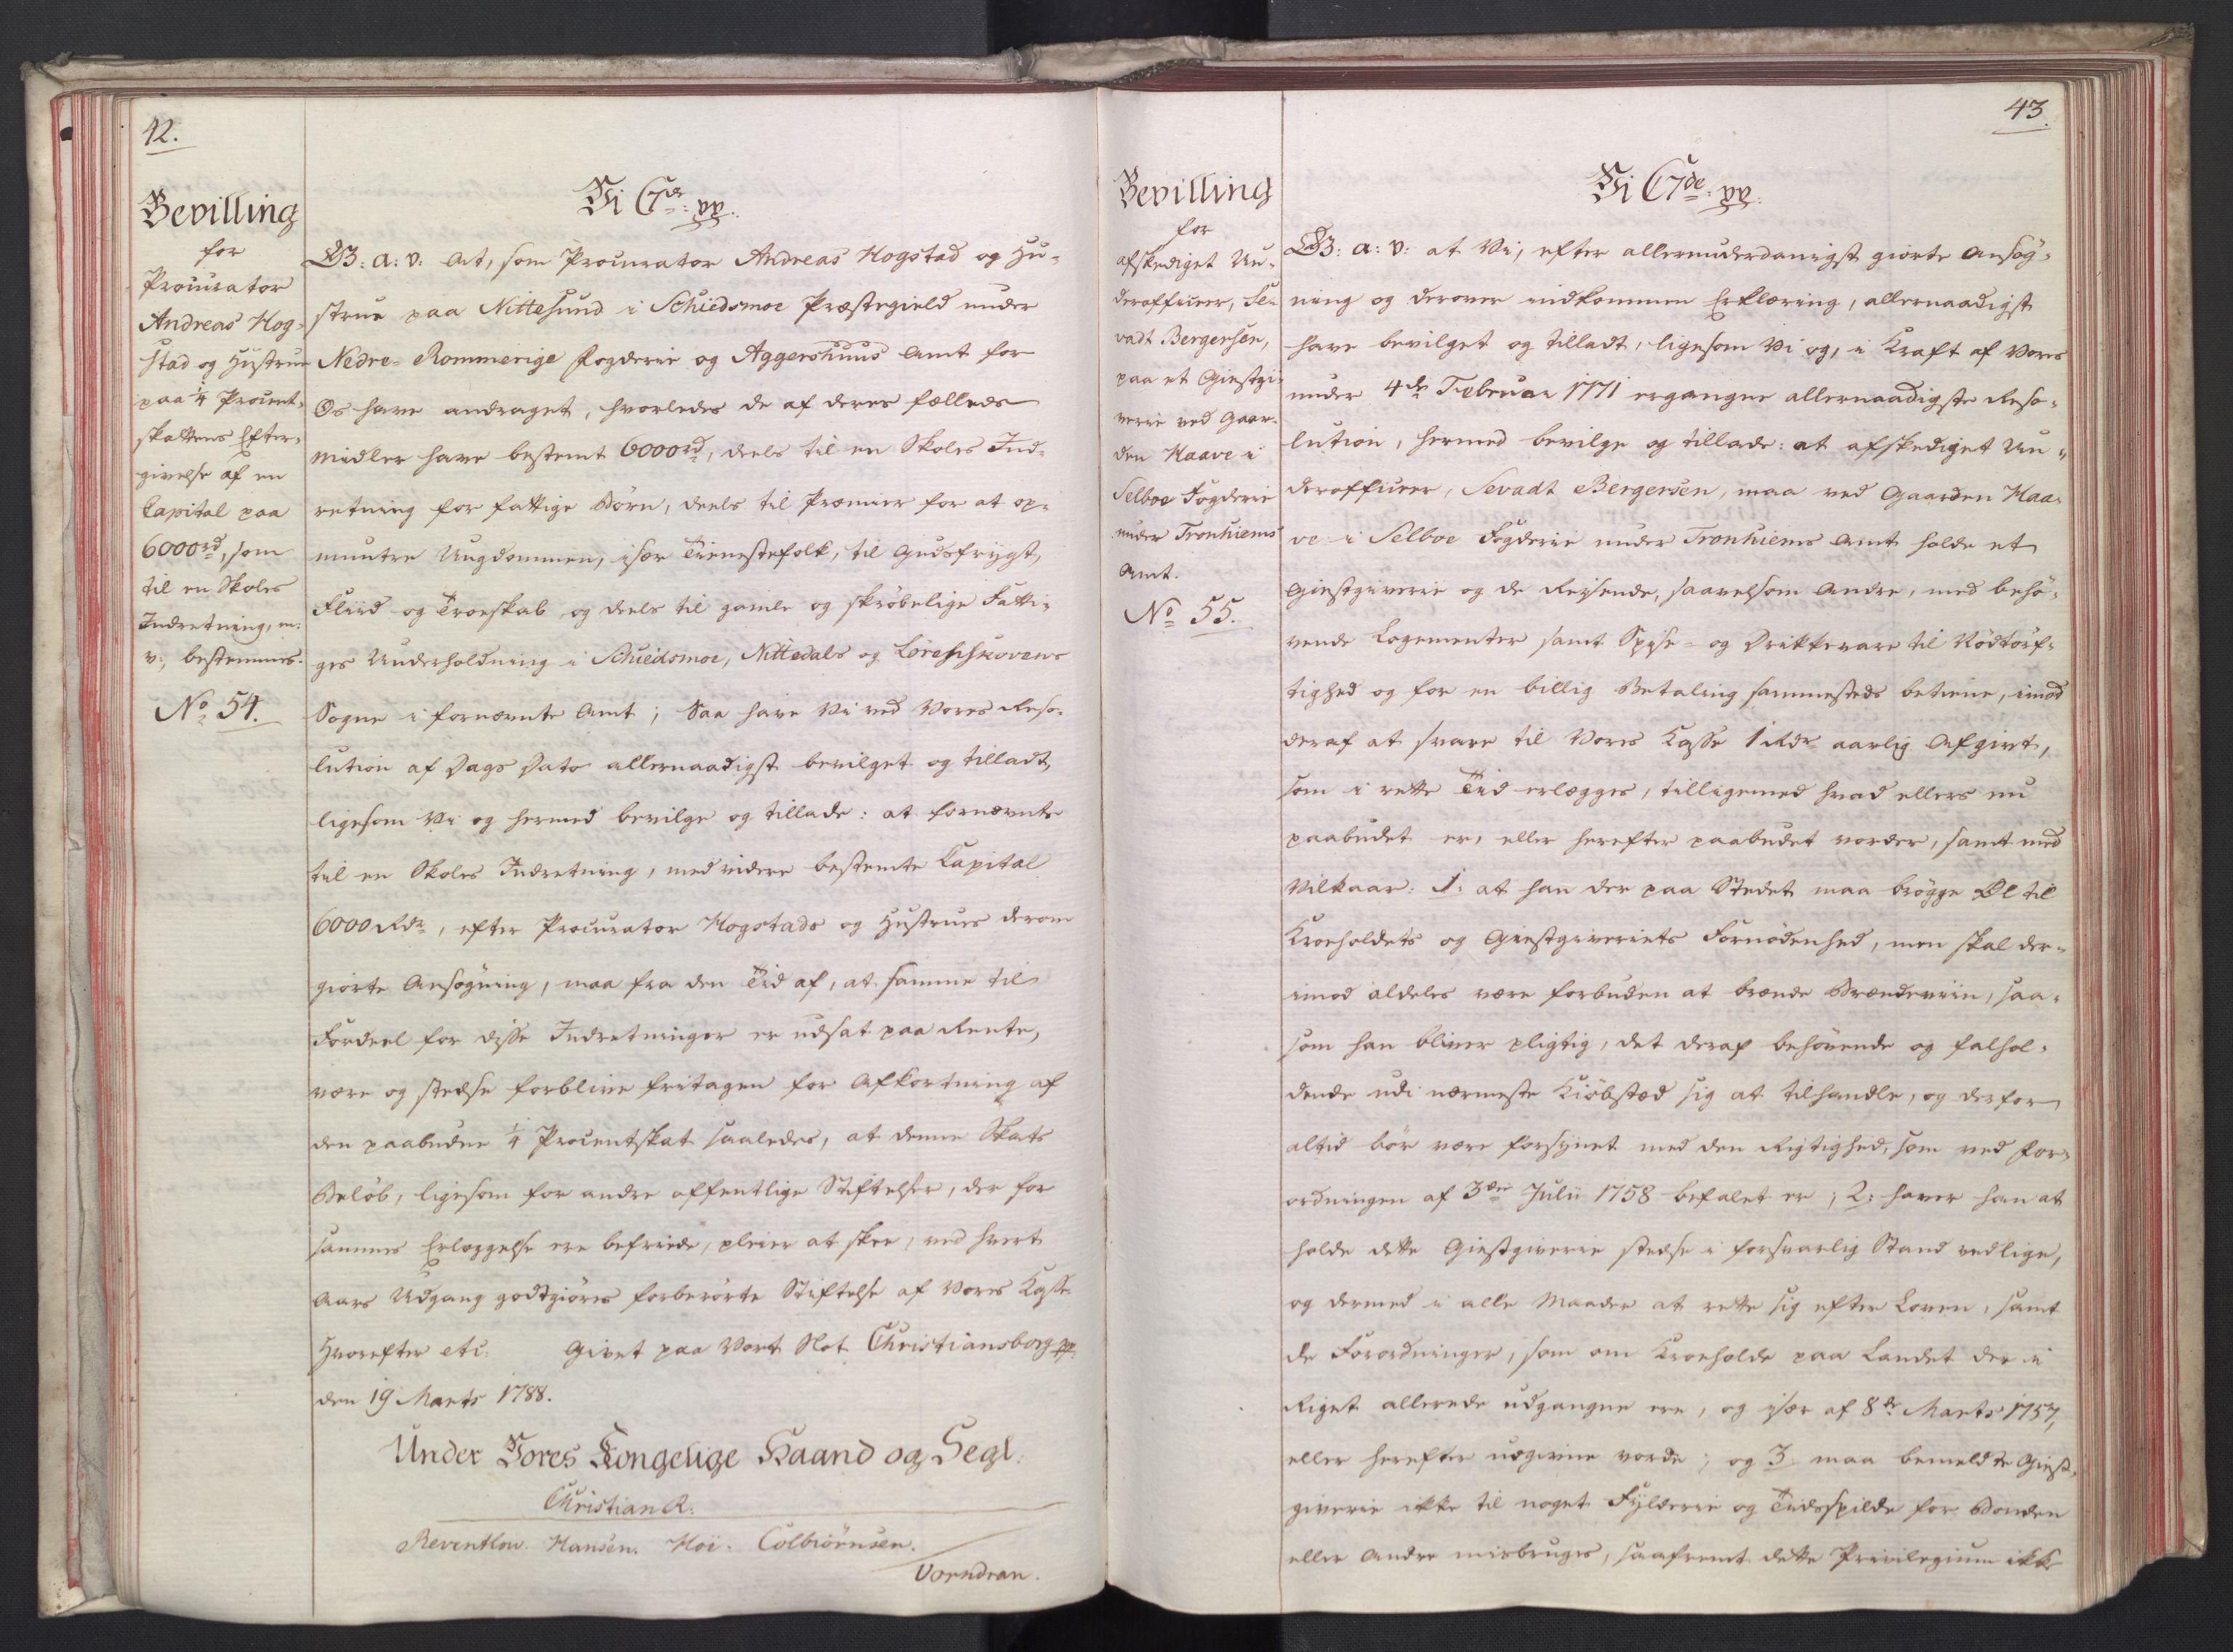 42.
Bevilling
for
Procurator
Andreas Hog-
stad og Hustrue
paa ¼ Procent-
skattens Efter-
givelse af en
Capital paa
6000rd, som
til en Skoles
Indretning, m.
v., bestemmes.
No 54.
Vi C7de: pp.
G: a: v: At, som Procurator Andreas Hogstad og Hu-
strue paa Nittesund i Schiedsmoe Præstegield under
Nedre-Rommerige Fogderie og Aggershuus Amt for
Os have andraget, hvorledes de af deres fælleds
Midler have bestemt 6000rd, deels til en Skoles Ind-
retning for fattige Børn, deels til Præmier for at op-
muntre Ungdommen, især Tienestefolk, til Gudsfrygt,
Fliid og Troeskab og deels til gamle og skröbelige Fatti-
ges Underholdning i Schiedsmoe, Nittedals og Lörenskovens
Sogne i fornævnte Amt; Saa have Vi ved Vores Reso-
lution af Dags Dato allernaadigst bevilget og tilladt,
ligesom Vi og hermed bevilge og tillade: at fornævnte
til en Skoles Indretning, med videre bestemte Capital
6000 Rdr, efter Procurator Hogstads og Hustrues derom
giorte Ansøgning, maa fra den Tid af, at samme til
Fordeel for disse Indretninger er udsat paa Rente,
være og stedse forblive fritagen for Afkortning af
den paabudne ¼ Procentskat saaledes, at denne Skats
Beløb, ligesom for andre offentlige Stiftelser, der for
sammes Erlæggelse ere befriede, pleier at skee, ved hvert
Aars Udgang godtgiøres forberørte Stiftelse af Vores Casse
Hvorefter etc. Givet paa Vort Slot Christiansborg pp.
den 19 Marts 1788.
Under Vores Kongelige Haand og Segl.
Christian R.
Reventlow. Hansen. Höi. Colbiörnsen.
Vorndran.
43.
Bevilling
for
afskediget Un-
derofficeer, Se-
vadt Bergersen,
paa et Giestgi-
verie ved Gaar-
den Haave i
Selboe Fogderie
under Tronhiems
Amt.
No 55.
Vi C7de: pp.
G: a: v: at Vi, efter allerunderdanigst giorte Ansøg-
ning og derover indkommen Erklæring, allernaadigst
have bevilget og tilladt, ligesom Vi og, i Kraft af Vores
under 4de Februar 1771 ergangne allernaadigste Reso-
lution, hermed bevilge og tillade: at afskediget Un-
derofficeer, Sevadt Bergersen, maa ved Gaarden Haa-
ve i Selboe Fogderie under Tronhiems Amt holde et
Giestgiverie og de Reisende, saavelsom Andre, med behø-
vende Logementer samt Spise- og Drikkevare til Nødtørf-
tighed og for en billig Betaling sammesteds betiene, imod
deraf at svare til Vores Casse 1 Rdr aarlig Afgivt,
som i rette Tiid erlægges, tilligemed hvad ellers nu
paabudet er, eller herefter paabudet vorder, samt med
Vilkaar: 1: at han der paa Stedet maa brøgge Øl til
Kroeholdets og Giestgiveriets Fornødenhed, men skal der-
imod aldeles være forbuden at brænde Brændeviin, saa-
som han bliver pligtig, det deraf behøvende og falhol-
dende udi nærmeste Kiøbstæd sig at tilhandle, og derfor
altid bør være forsynet med den Rigtighed, som ved For-
ordningen af 3die Julii 1758 befalet er; 2: haver han at
holde dette Giestgiverie stedse i forsvarlig Stand vedlige,
og dermed i alle Maader at rette sig efter Loven, samt
de Forordninger, som om Kroehold paa Landet der i
Riget allerede udgangne ere, og især af 8de Marts 1757,
eller herefter udgivne vorde; og 3. maa bemeldte Giest-
giverie ikke til noget Fylderie og Tidsspilde for Bonden
eller Andre misbruges, saafremt dette Privilegium ikke